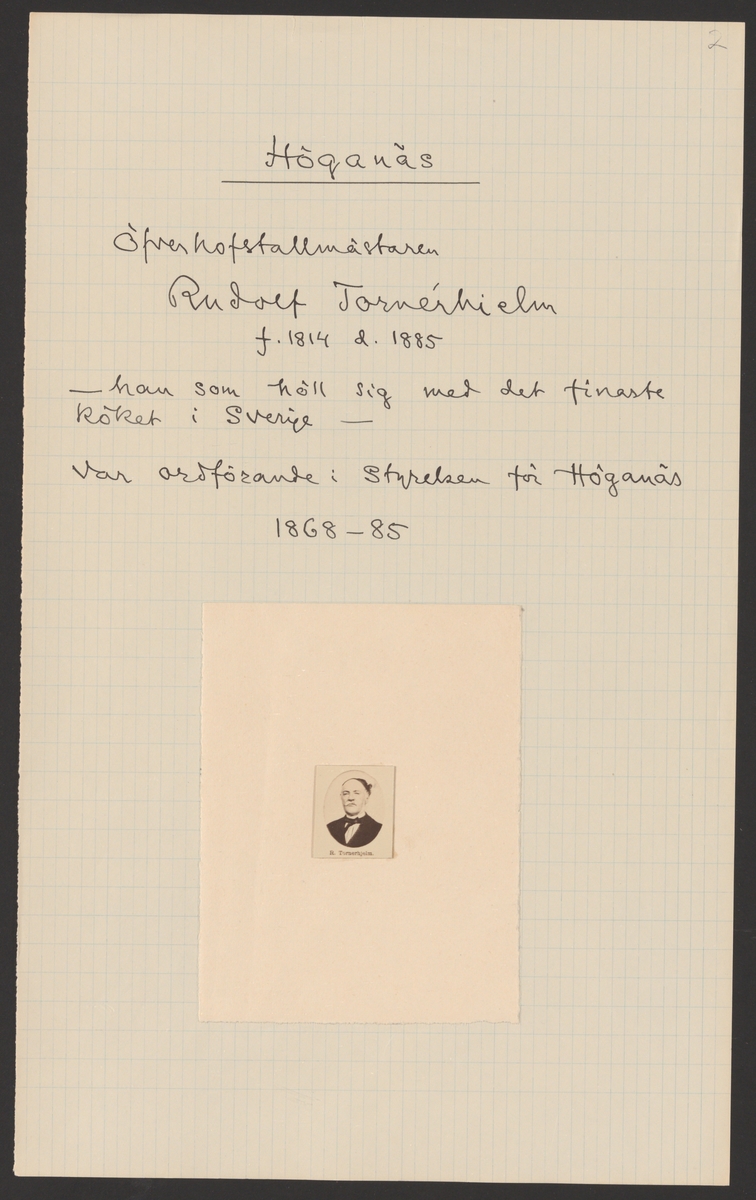 2
Höganäs
Öfverhofstallmästaren
Rudolf Tornérhielm
f. 1814 d. 1885
— han som höll sig med det finaste
köket i Sverige —
var ordförande i Styrelsen för Höganäs
1868 – 85
R. Tornerhjelm.